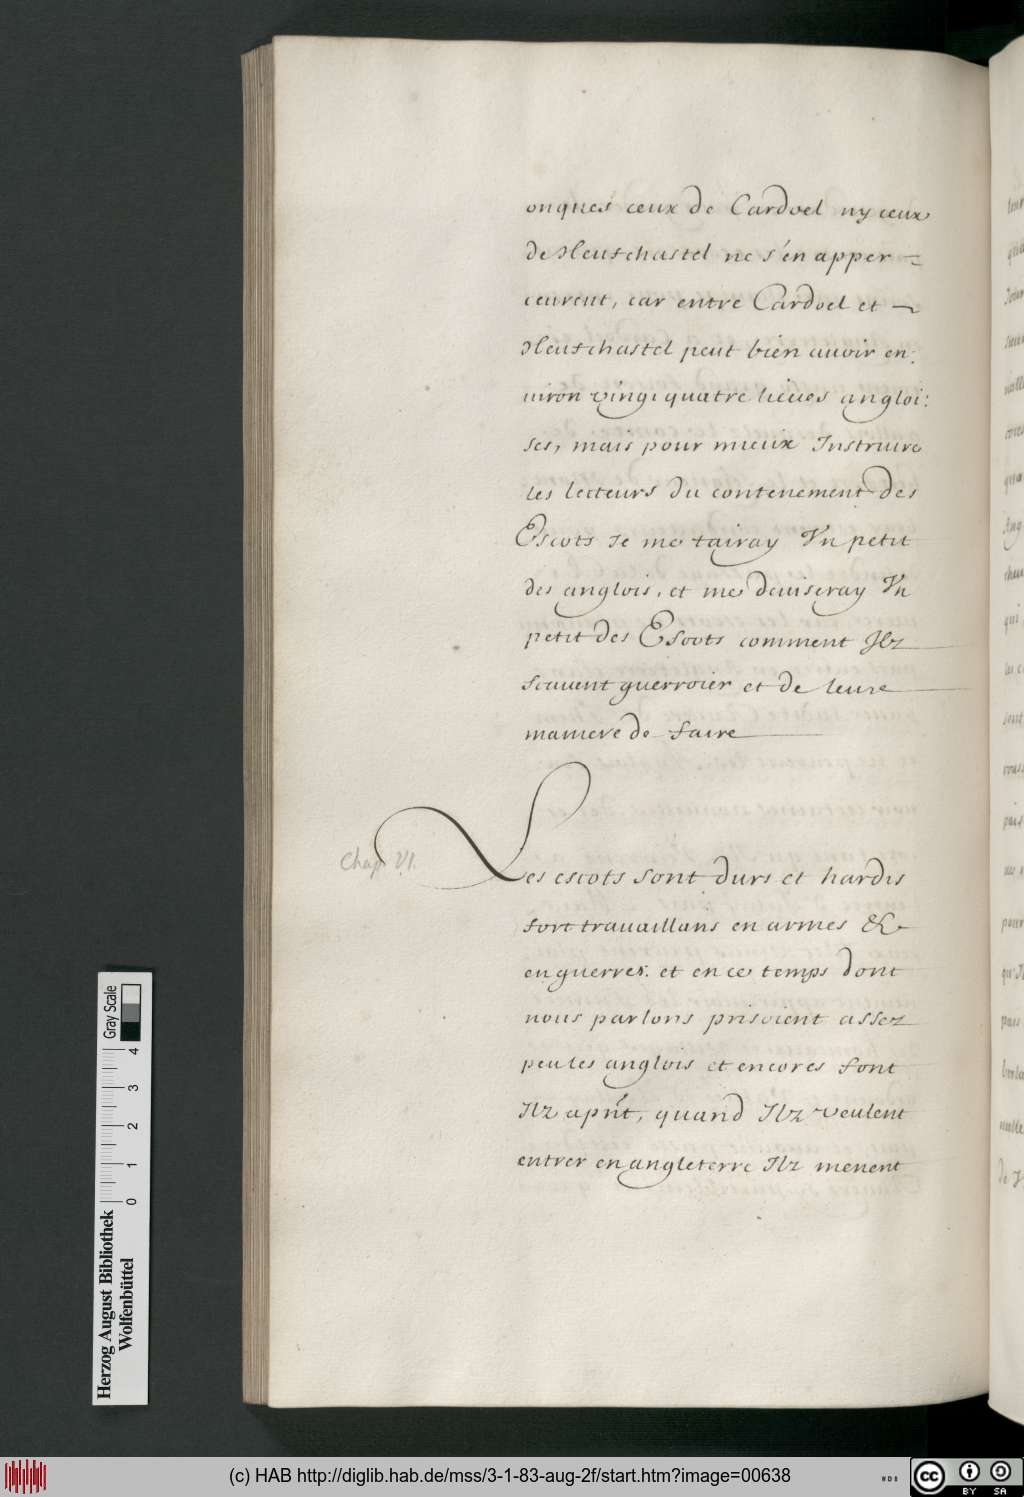 onques ceux de Cardoel ny ceux
de Neufchastel ne s'en apper-
ceurent, car entre Cardoel et
Neufchastel peut bien auoir en:
uiron vingt quatre lieues angloi:
ses, mais pour mieux Instruire
les lecteurs du contenement des
Escots Je me tairay Vn petit
des anglois, et me deuiseray Vn
petit des Escots comment Ilz
scauent guerroier et de leure
maniere de faire
Chap VI.
Les escots sont durs et hardis
fort trauaillans en armes &
en guerres. et en ce temps dont
nous parlons prisoient assez
peu les anglois et encores font
Ilz apñt, quand Ilz veulent
entrer en angleterre Ilz menent
Herzog August Bibliothek
Wolfenbüttel
0 1 2 3 4
Gray Scale
(c) HAB http://diglib.hab.de/mss/3-1-83-aug-2f/start.htm?image=00638
WDB
cc BY SA